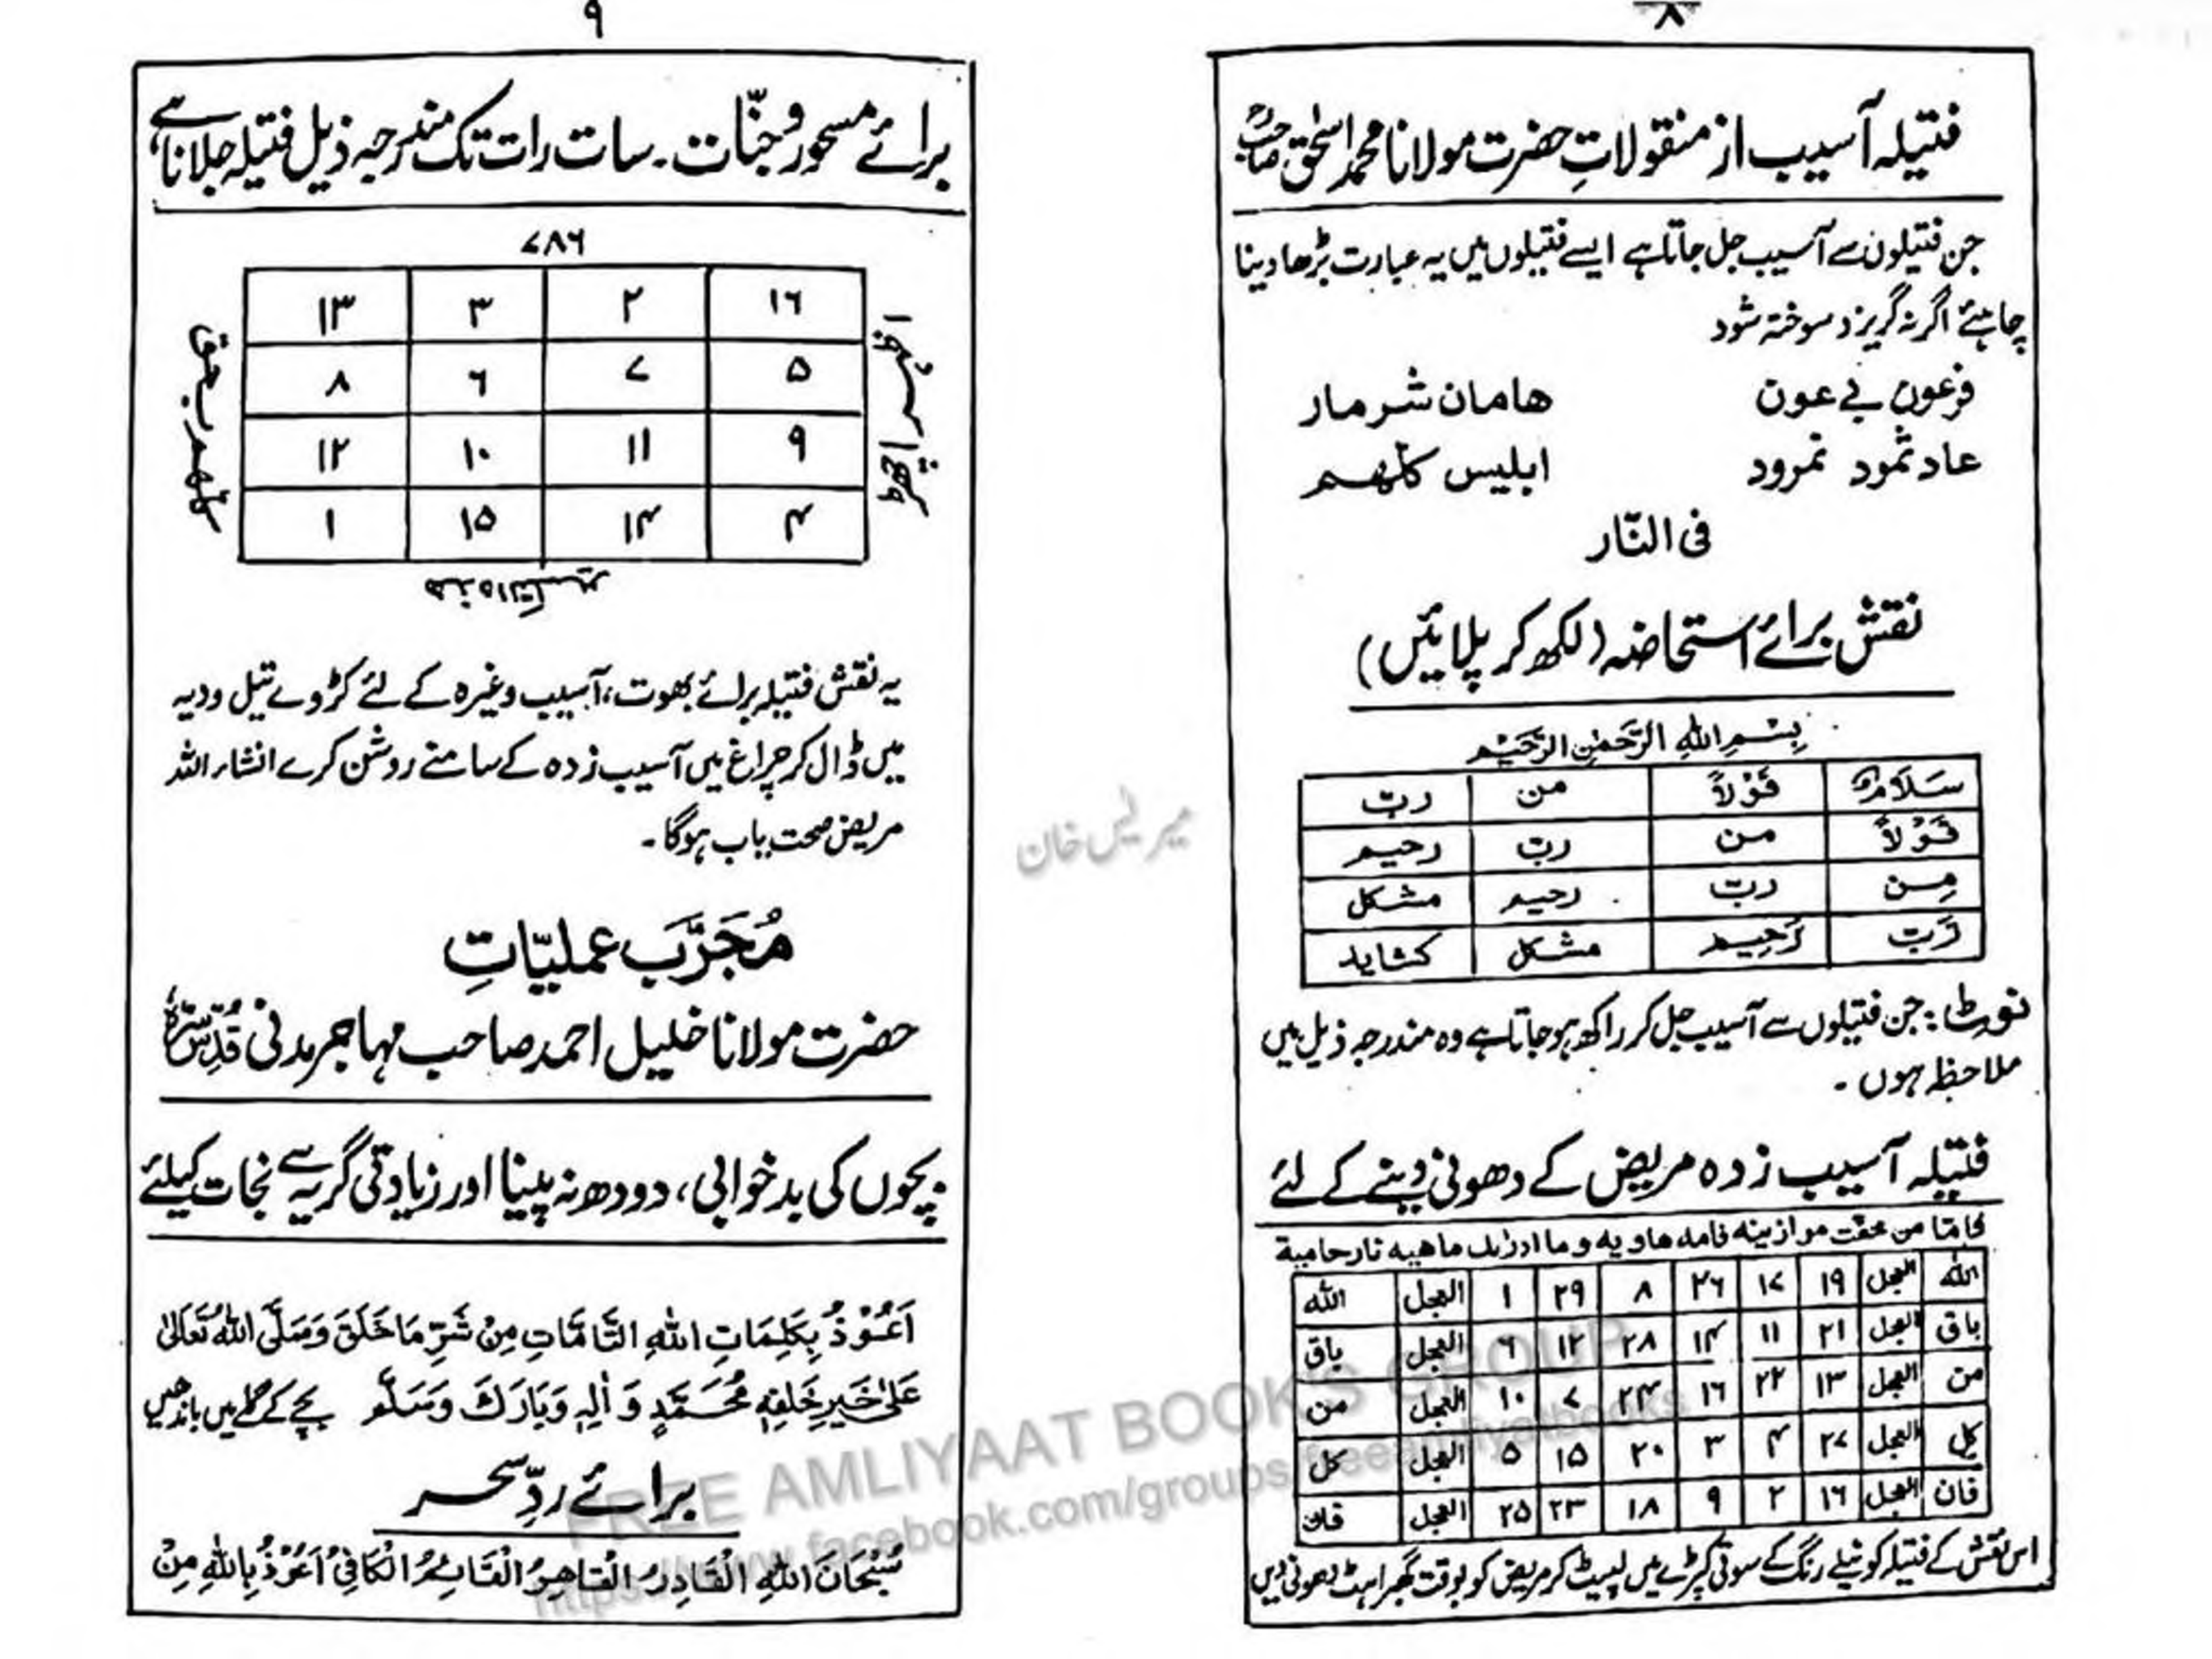 ۸
فتیلہ آسیب از منقولاتِ حضرت مولانا محمد اسحٰق صاحبؒ
جن فتیلون سے آسیب جل جاتا ہے ایسے فتیلوں میں یہ عبارت بڑھا دینا
چاہئے اگر نہ گریزد سوختہ شود
فرعون بے عون هامان شرمار
عاد ثمود نمرود ابلیس کلهم
فی النّار
نقش برائے استحاضہ (لکھ کر پلائیں)
بِسْمِ اللهِ الرَّحْمٰنِ الرَّحِيْمِ
سَلَامٌ قَوْلاً من ربّ
قَوْلاً من ربّ رحیم
مِن ربّ رحیم مشکل
رَبّ رَحِیم مشکل کشاید
نوٹ: جن فتیلوں سے آسیب جل کر راکھ ہو جاتا ہے وہ مندرجہ ذیل ہیں
ملاحظہ ہوں ۔
فتیلہ آسیب زدہ مریض کے دھونی دینے کے لئے
من خفت موازینه فامه هاویه وما ادرٰىك ماهیه نار حامیة
الله العجل ۱۹ ۱۷ ۲۶ ۸ ۲۹ ۱ العجل الله
باق العجل ۲۱ ۱۱ ۱۴ ۲۸ ۱۲ ۶ العجل باق
من العجل ۱۳ ۲۲ ۱۶ ۲۴ ۷ ۱۰ العجل من
کل العجل ۲۷ ۴ ۳ ۲۰ ۱۵ ۵ العجل کل
فان العجل ۱۶ ۲ ۹ ۱۸ ۲۳ ۲۵ العجل فان
اس نقش کے فتیلہ کو نیلے رنگ کے سوتی کپڑے میں لپیٹ کر مریض کو بوقت گھبراہٹ دھونی دیں
۹
برائے مسحور و جنّات ۔ سات رات تک مندرجہ ذیل فتیلہ جلانا ہے
۷۸۶
۱۶ ۲ ۳ ۱۳
۵ ۷ ۶ ۸
۹ ۱۱ ۱۰ ۱۲
۴ ۱۴ ۱۵ ۱
یہ نقش فتیلہ برائے بھوت، آسیب وغیرہ کے لئے کڑوے تیل ودیہ
میں ڈال کر چراغ میں آسیب زدہ کے سامنے روشن کرے انشاء اللہ
مریض صحت یاب ہوگا ۔
مُجَرَّب عملیّاتِ
حضرت مولانا خلیل احمد صاحب مہاجر مدنی قُدِّسَ سِرُّہٗ
بچوں کی بد خوابی، دودھ نہ پینا اور زیادتی گریہ سے نجات کیلئے
اَعُوْذُ بِكَلِمَاتِ اللهِ التَّامَّاتِ مِنْ شَرِّ مَا خَلَقَ وَصَلَّى اللهُ تَعَالىٰ
عَلىٰ خَيْرِ خَلْقِهٖ مُحَمَّدٍ وَاٰلِهٖ وَبَارَكَ وَسَلَّم بچے کے گلے میں باندھیں
برائے ردِّ سحر
سُبْحَانَ اللهِ الْقَادِرُ الْقَاهِرُ الْقَائِمُ الْكَافِيْ اَعُوْذُ بِاللهِ مِنْ
FREE AMLIYAAT BOOK'S GROUP
https://www.facebook.com/groups/freeamliyatbooks